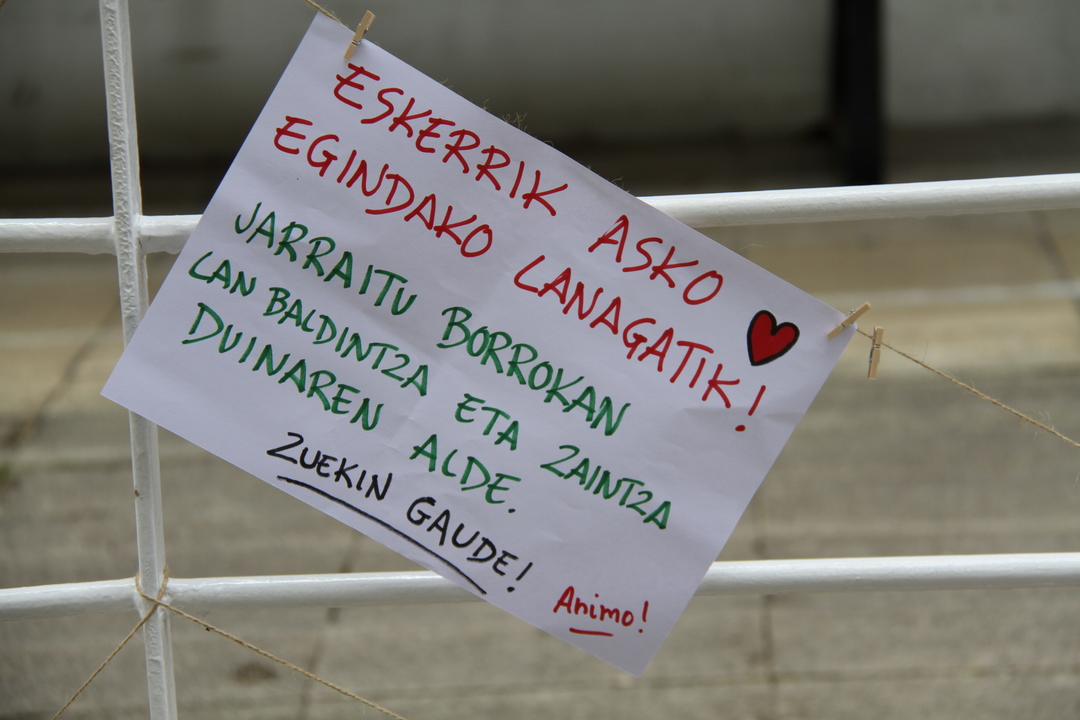 ESKERRIK ASKO
EGINDAKO LANAGATIK!
JARRAITU BORROKAN
LAN BALDINTZA ETA ZAINTZA
DUINAREN ALDE.
ZUEKIN GAUDE!
Animo!